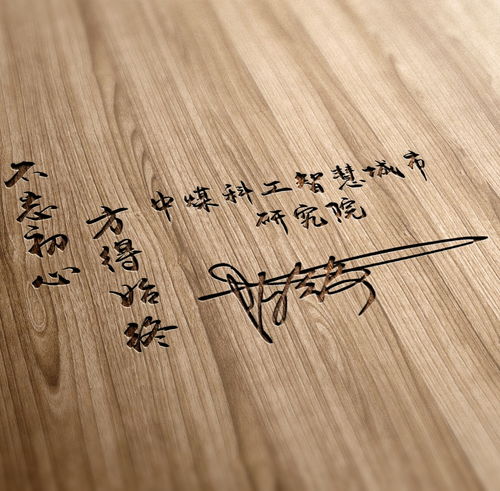 不忘初心
方得始终
中煤科工智慧城市
研究院